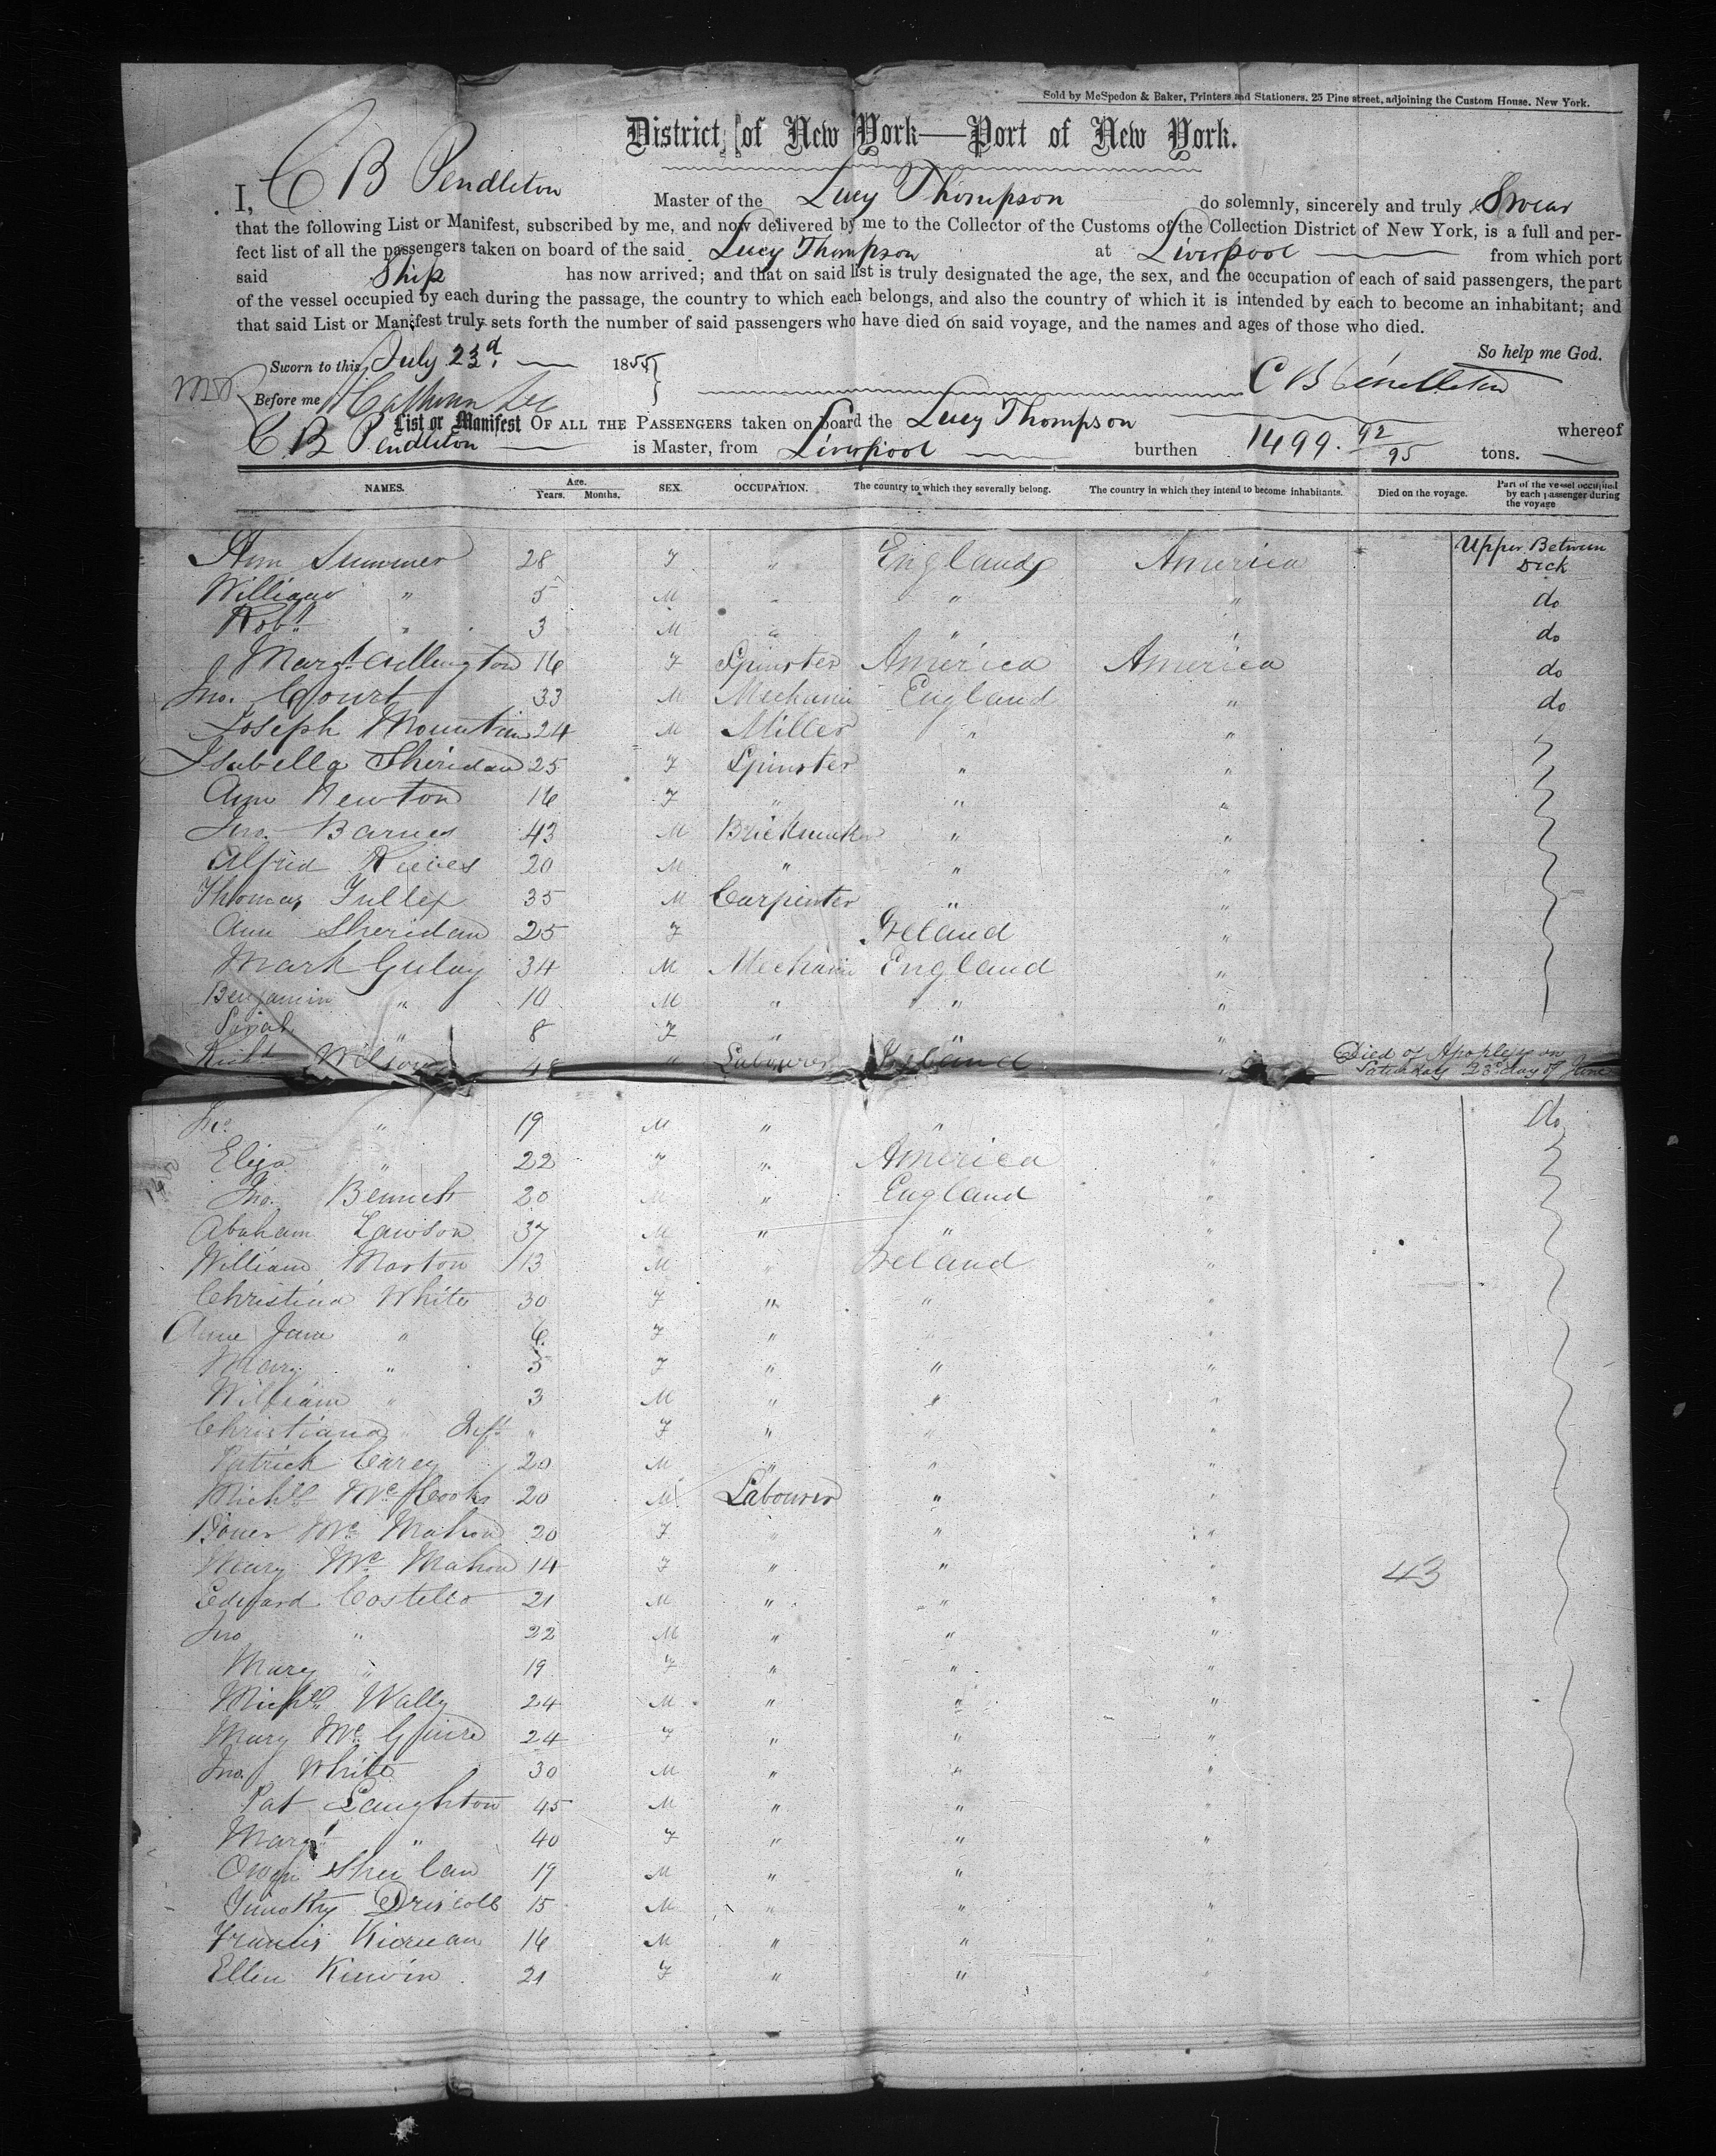 Sold by McSpedon & Baker, Printers and Stationers. 25 Pine street, adjoining the Custom House. New York.
District of New York—Port of New York.
I, C B Pendleton Master of the Lucy Thompson do solemnly, sincerely and truly Swear
that the following List or Manifest, subscribed by me, and now delivered by me to the Collector of the Customs of the Collection District of New York, is a full and per-
fect list of all the passengers taken on board of the said Lucy Thompson at Liverpool from which port
said Ship has now arrived; and that on said list is truly designated the age, the sex, and the occupation of each of said passengers, the part
of the vessel occupied by each during the passage, the country to which each belongs, and also the country of which it is intended by each to become an inhabitant; and
that said List or Manifest truly sets forth the number of said passengers who have died on said voyage, and the names and ages of those who died.
So help me God.
Sworn to this July 23d 1855
C B Pendleton
Before me
List or Manifest OF ALL THE PASSENGERS taken on board the Lucy Thompson whereof
C. B Pendleton is Master, from Liverpool burthen 1499. 92/95 tons.
NAMES. Age. Years. Months. SEX. OCCUPATION. The country to which they severally belong. The country in which they intend to become inhabitants. Died on the voyage. Part of the vessel occupied by each passenger during the voyage
Ann Summer 28 F " England America Upper Between Deck
William " 5 M " " " do
Robt " 3 M " " " do
Margt Adlington 16 F Spinster America America do
Jno. Court 33 M Mechanic England " do
Joseph Mountain 24 M Miller " "
Isabella Sheridan 25 F Spinster " "
Ann Newton 16 F " " "
Jno. Barnes 43 M Brickmaker " "
Alfred Reeves 20 M " " "
Thomas 35 M Carpenter " "
Ann Sheridan 25 F Ireland "
Mark 34 M Mechanic England "
Benjamin " 10 M " " "
Sarah " 8 F " " "
Richd Wilson 48 " Labourer Ireland " Died of Apoplexy on Saturday 23d day of June
Jno. " 19 M " " " do
Eliza " 22 F " America "
Jno. 20 M " England "
Abraham Lawson 37 M " " "
William Morton 13 M " Ireland "
Christina White 30 F " " "
Anne Jane " 6 F " " "
Mary " 5 F " " "
William " 3 M " " "
Christiana " Inft " F " " "
Patrick Carey 20 M " " "
Michl Mc 20 M Labourer " "
Mc Mahon 20 F " " "
Mary Mc Mahon 14 F " " " 43
Edward Costello 21 M " " "
Jno " 22 M " " "
Mary " 19 F " " "
Michl Wally 24 M " " "
Mary Mc Guire 24 F " " "
Jno. White 30 M " " "
Pat Laughton 45 M " " "
Margt " 40 F " " "
Owen 19 M " "
Timothy Driscoll 15 M " " "
Francis Kiernan 16 M " " "
Ellen Kirwin 21 F " " "